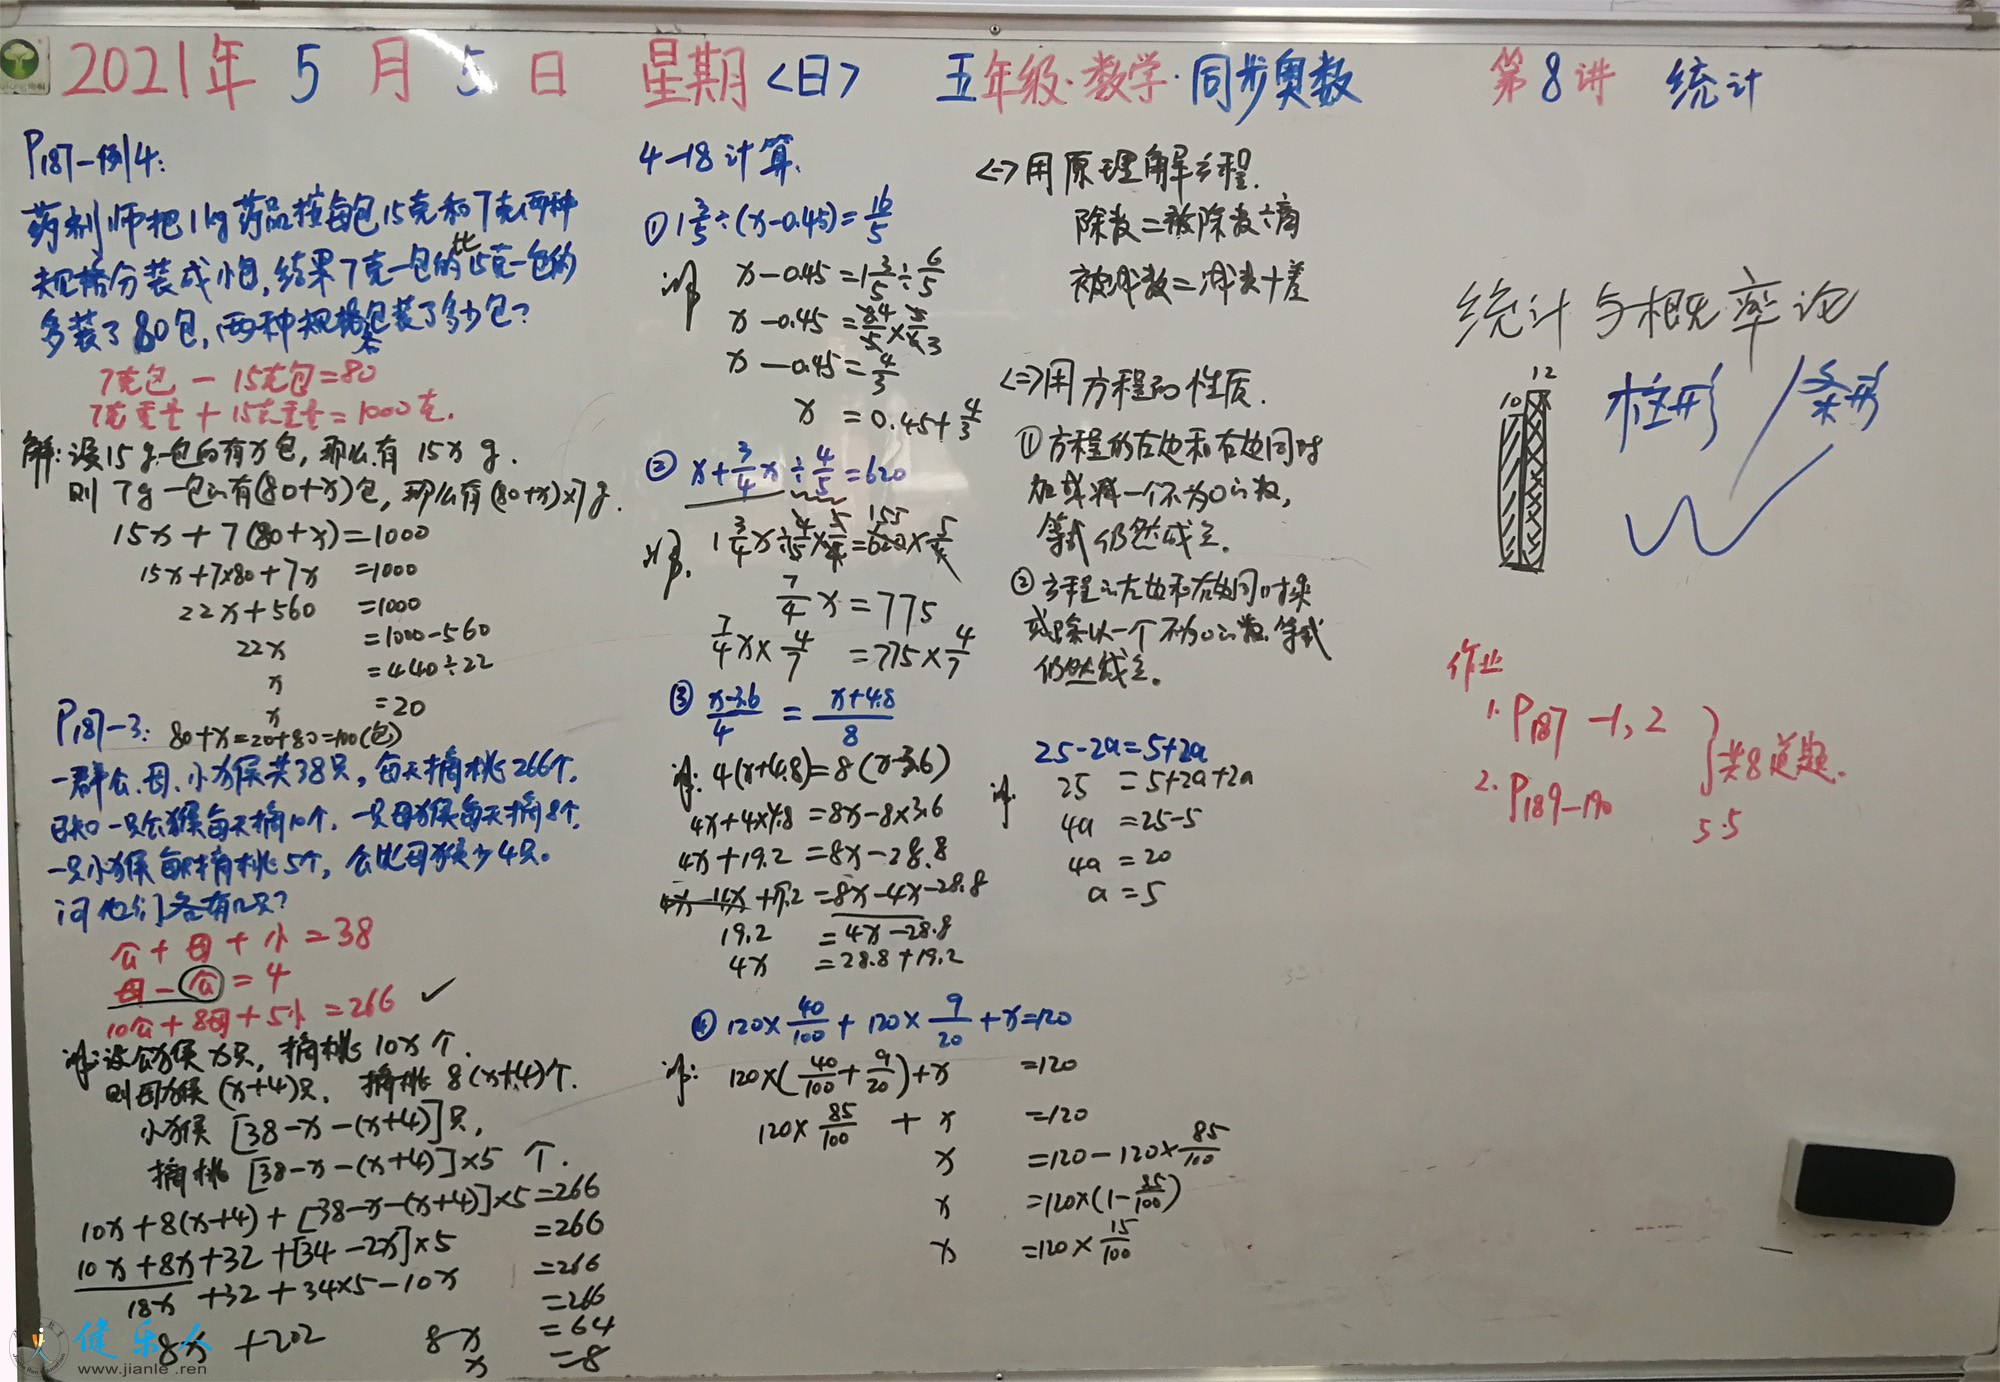 2021年 5 月 5 日 星期<日> 五年级·数学·同步奥数 第8讲 统计
P187-例4:
药剂师把1kg药品按每包15克和7克两种
规格分装成小包,结果7克一包的比15克一包的
多装了80包,两种规格各包装了多少包?
7克包-15克包=80
7克重量+15克重量=1000克.
解:设15g一包的有x包,那么有 15x g.
则 7g一包的有(80+x)包,那么有(80+x)×7g.
15x+7(80+x)=1000
15x+7×80+7x =1000
22x+560 =1000
22x =1000-560
x =440÷22
x =20
80+x=20+80=100(包)
P187-3:
一群公.母.小猴共38只,每天摘桃266个.
已知一只公猴每天摘10个.一只母猴每天摘8个.
一只小猴每天摘桃5个,公比母猴少4只。
问他们各有几只?
公+母+小=38
母-公=4
10公+8母+5小=266 ✓
解:设公猴x只,摘桃10x个.
则母猴(x+4)只,摘桃8(x+4)个.
小猴[38-x-(x+4)]只,
摘桃[38-x-(x+4)]×5 个.
10x+8(x+4)+[38-x-(x+4)]×5=266
10x+8x+32+[34-2x]×5 =266
18x+32+34×5-10x =266
8x+202 =266
8x =64
x =8
4-18计算.
①1 3/5÷(x-0.45)=16/5
解 x-0.45=1 3/5÷6/5
x-0.45=84/5×5/63
x-0.45=4/3
x =0.45+4/3
②x+3/4x÷4/5=620
解. 1 3/4x÷4/5×5/4=620×5/4
155
7/4x=775
7/4x×4/7 =775×4/7
③ x-3.6/4 = x+4.8/8
解:4(x+4.8)=8(x-3.6)
4x+4×4.8=8x-8×3.6
4x+19.2=8x-28.8
4x-4x+19.2=8x-4x-28.8
19.2 =4x-28.8
4x =28.8+19.2
④120×40/100+120×9/20+x=120
解: 120×(40/100+9/20)+x =120
120×85/100 + x =120
x =120-120×85/100
x =120×(1-85/100)
x =120×15/100
<一>用原理解方程.
除数=被除数÷商
被减数=减数+差
<二>用方程的性质.
①方程的左边和右边同时
加或减一个不为0的数,
等式仍然成立.
②方程的左边和右边同时乘
或除以一个不为0的数.等式
仍然成立。
25-2a=5+2a
解. 25 =5+2a+2a
4a =25-5
4a =20
a =5
统计与概率论
12
10
柱形/条形
作业
1. P187-1,2
2. P189-190
共8道题.
5.5
健乐人
www.jianle.ren